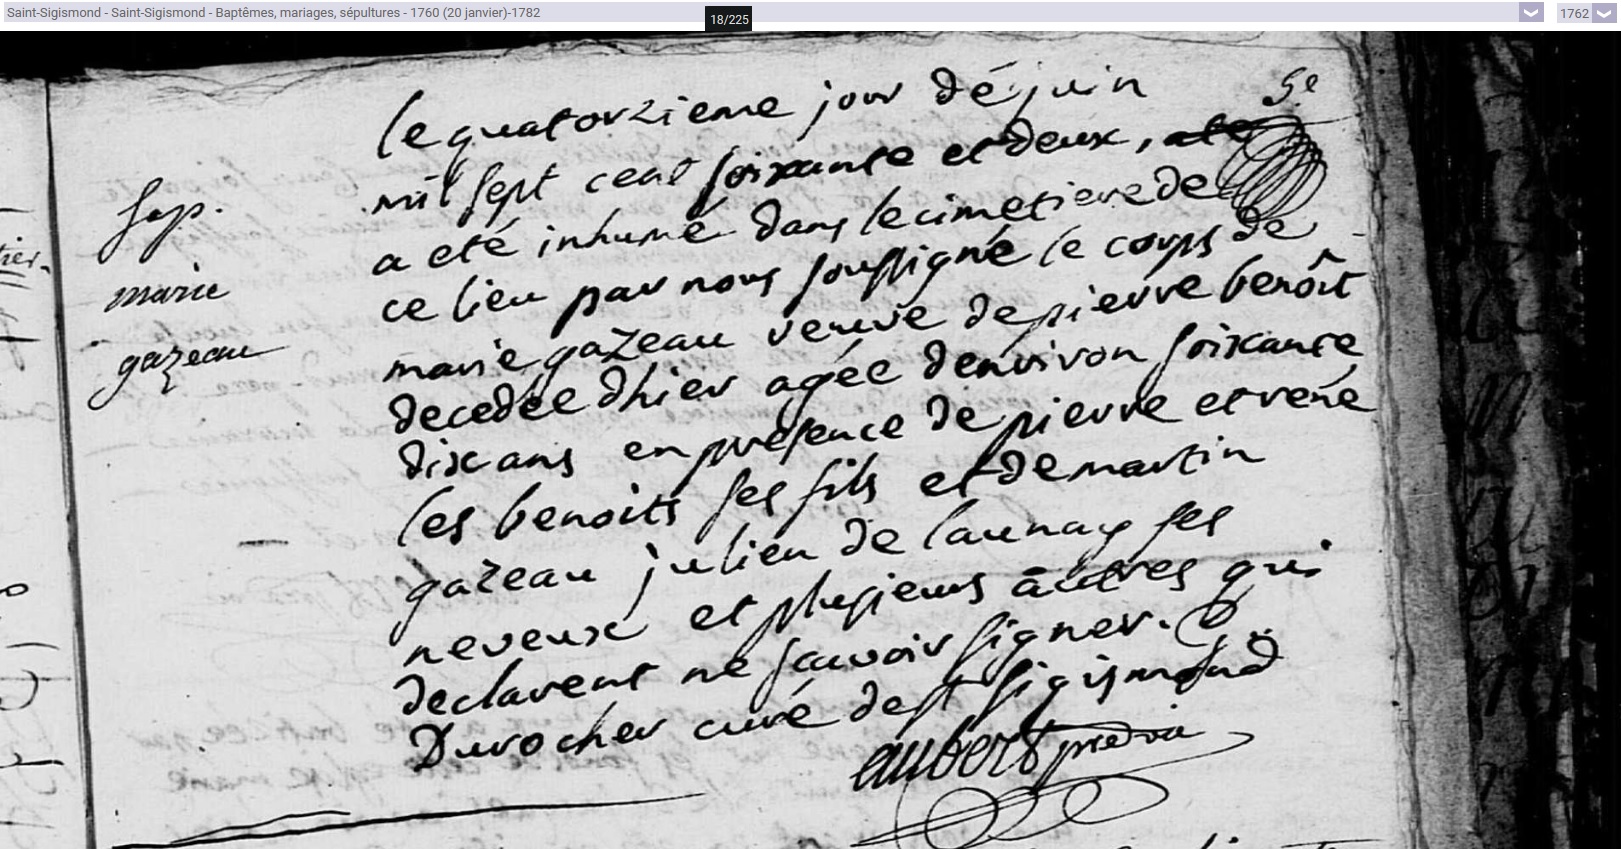 Saint-Sigismond - Saint-Sigismond - Baptêmes, mariages, sépultures - 1760 (20 janvier)-1782
18/225
1762
5e
le quatorzieme jour dé juin
mil sept cent soixante et deux,
a eté inhumé dans le cimetiere de
ce lieu par nous soussigné le corps de
marie gazeau veuve de pierre benôit
decedée dhier agée denviron soixante
dix ans en presence de pierre et rené
les benoits ses fils et de martin
gazeau julien de launay ses
neveux et plusieurs autres qui
declarent ne savoir signer.
Durocher curé de st sigismond
aubert
sep.
marie
gazeau